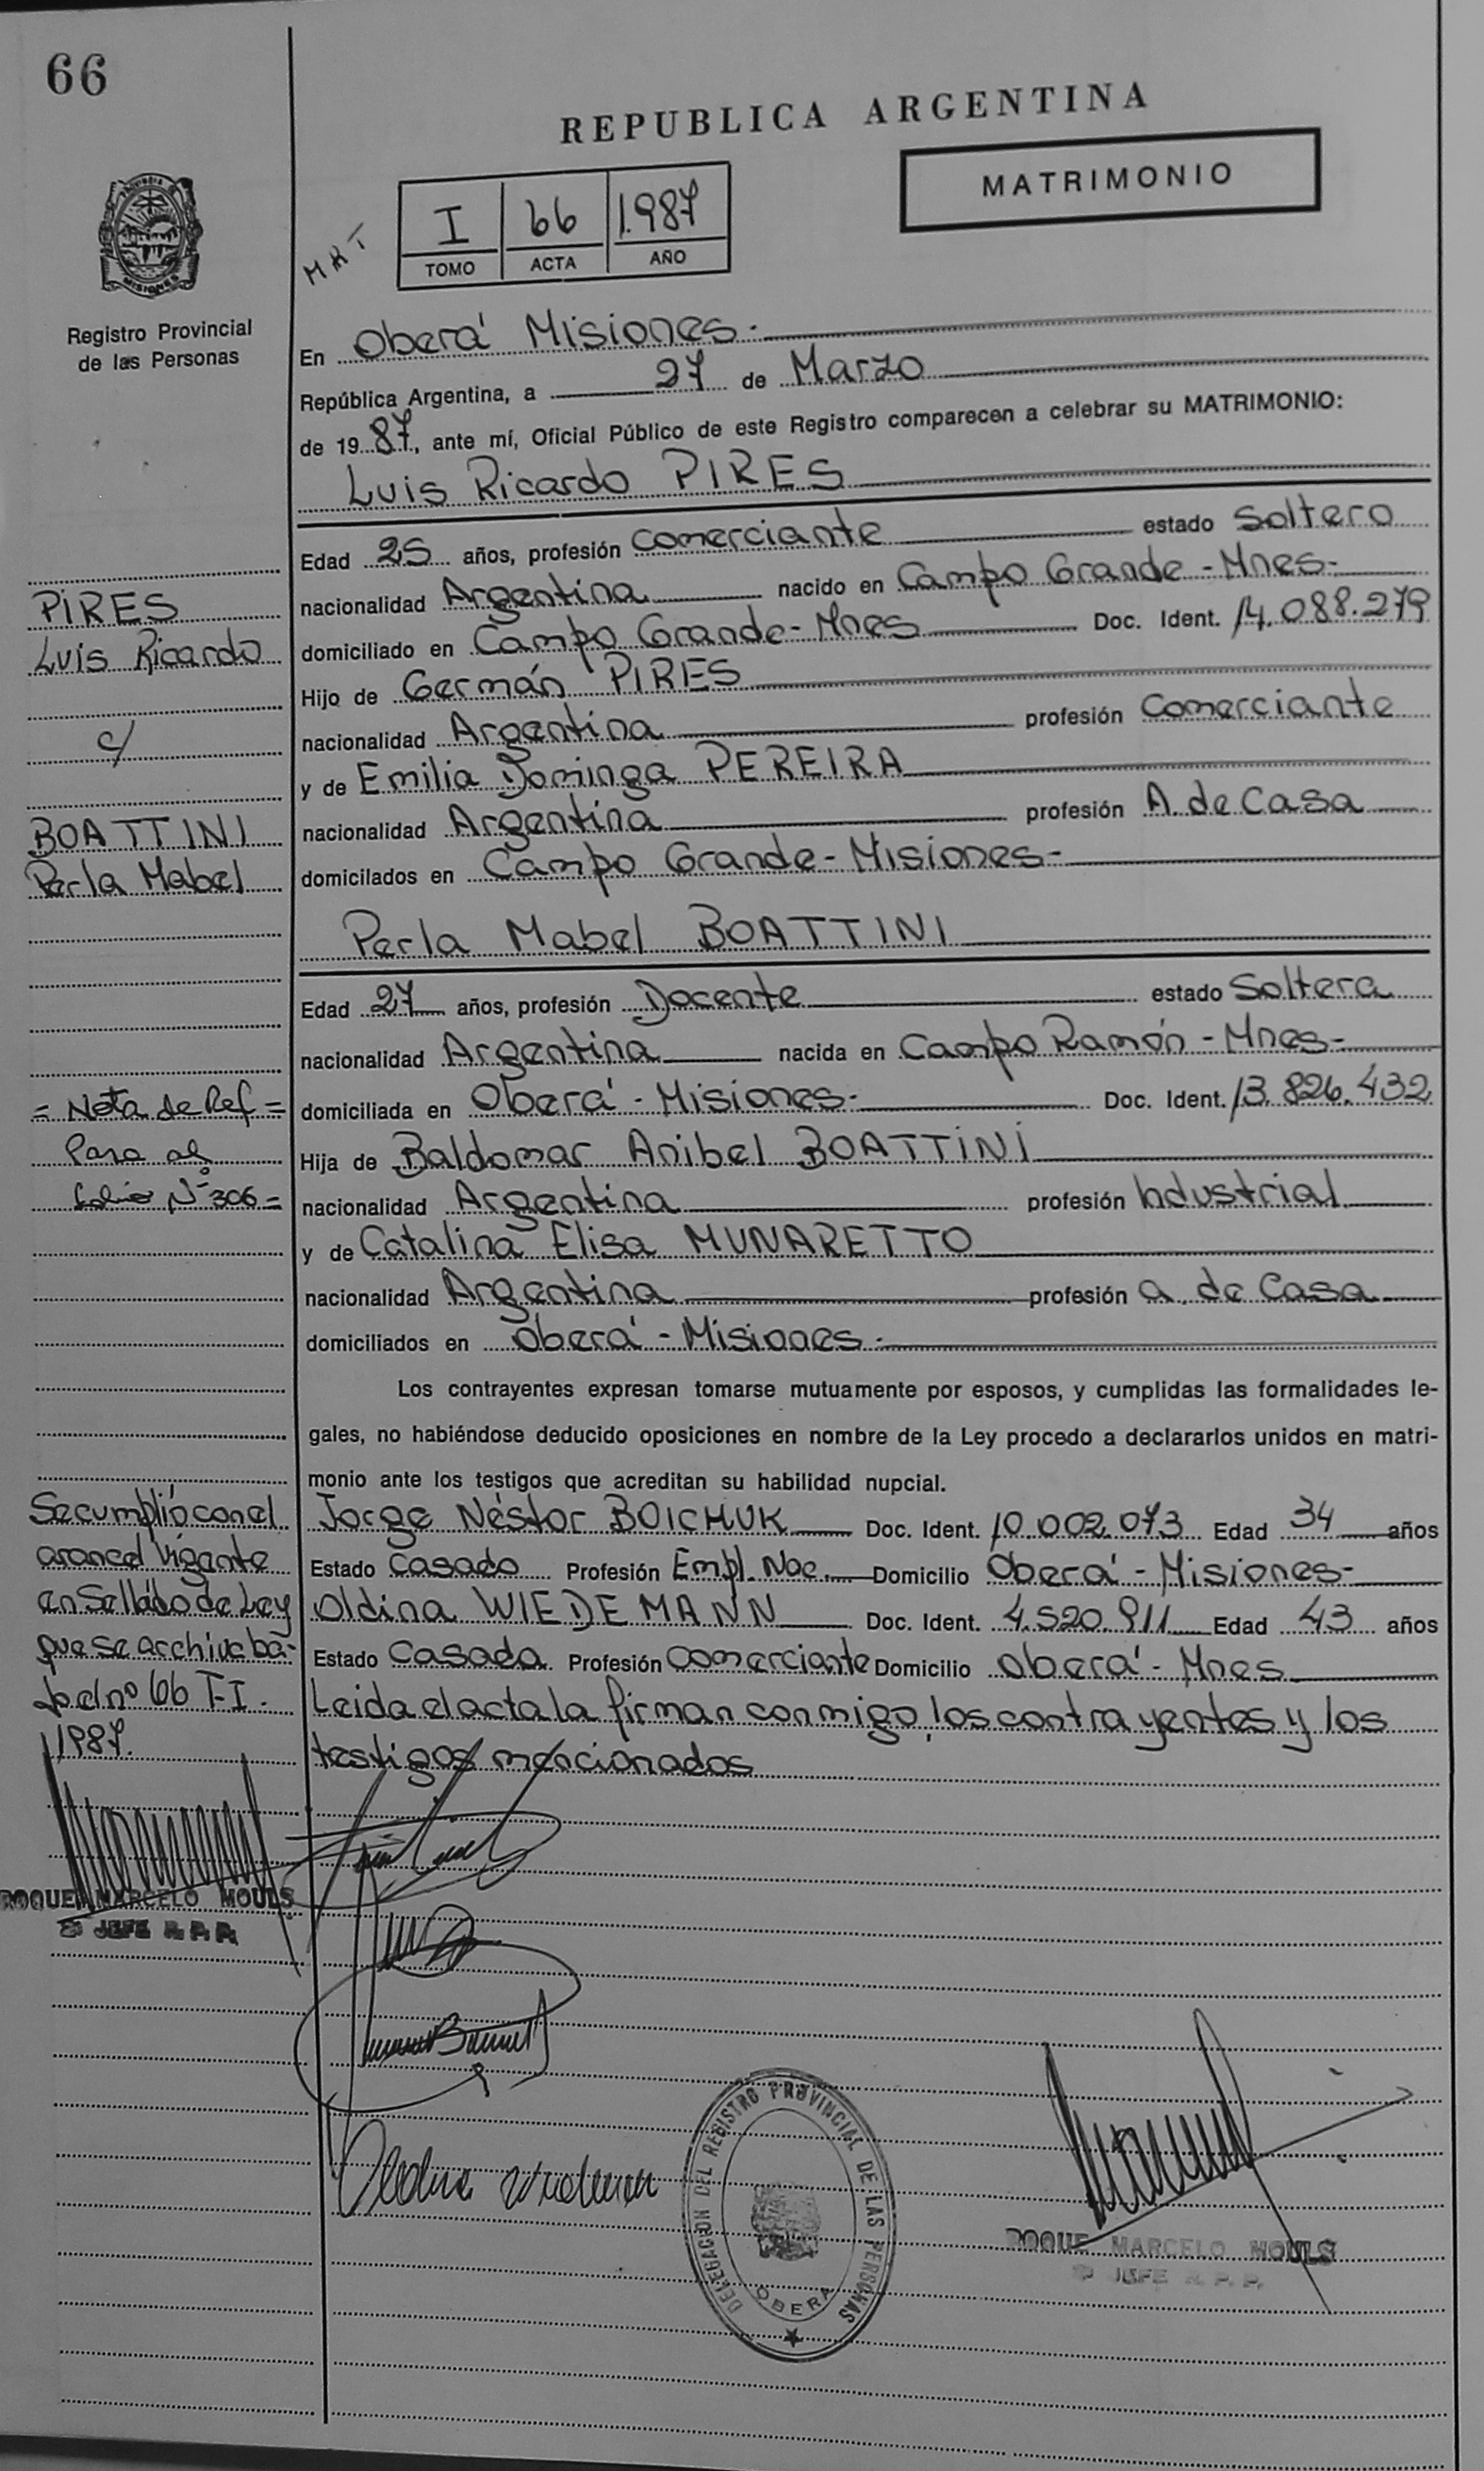 66
REPUBLICA ARGENTINA
MATRIMONIO
MRT
I 66 1.987
TOMO ACTA AÑO
PROVINCIA DE
MISIONES
Registro Provincial
de las Personas
En Oberá Misiones.-
República Argentina, a 27 de Marzo
de 19 87, ante mí, Oficial Público de este Registro comparecen a celebrar su MATRIMONIO:
Luis Ricardo PIRES
Edad 25 años, profesión Comerciante estado Soltero
nacionalidad Argentina nacido en Campo Grande - Mnes-
domiciliado en Campo Grande - Mnes Doc. Ident. 14.088.279
Hijo de Germán PIRES
nacionalidad Argentina profesión Comerciante
y de Emilia Dominga PEREIRA
nacionalidad Argentina profesión A. de Casa
domicilados en Campo Grande - Misiones-
Perla Mabel BOATTINI
Edad 27 años, profesión Docente estado Soltera
nacionalidad Argentina nacida en Campo Ramón - Mnes-
domiciliada en Oberá - Misiones- Doc. Ident. 13.826.432
Hija de Baldomar Anibel BOATTINI
nacionalidad Argentina profesión Industrial
y de Catalina Elisa MUNARETTO
nacionalidad Argentina profesión a. de Casa
domiciliados en Oberá - Misiones.-
Los contrayentes expresan tomarse mutuamente por esposos, y cumplidas las formalidades le-
gales, no habiéndose deducido oposiciones en nombre de la Ley procedo a declararlos unidos en matri-
monio ante los testigos que acreditan su habilidad nupcial.
Jorge Néstor BOICHUK Doc. Ident. 10.002.073 Edad 34 años
Estado Casado Profesión Empl. Nac. Domicilio Oberá - Misiones-
Oldina WIEDEMANN Doc. Ident. 4.520.911 Edad 43 años
Estado Casada Profesión Comerciante Domicilio Oberá - Mnes
Leida el acta la firman conmigo, los contrayentes y los
testigos mencionados
PIRES
Luis Ricardo
c/
BOATTINI
Perla Mabel
= Nota de Ref =
Pasa al
folio Nº 306 =
Se cumplió con el
arancel Vigente
en Sellado de Ley
que se archiva ba-
jo el nº 66 T-I.
1987.
ROQUE MARCELO MOULS
JEFE R. P. P.
DELEGACION DEL REGISTRO PROVINCIAL DE LAS PERSONAS
OBERA
ROQUE MARCELO MOULS
JEFE R. P. P.